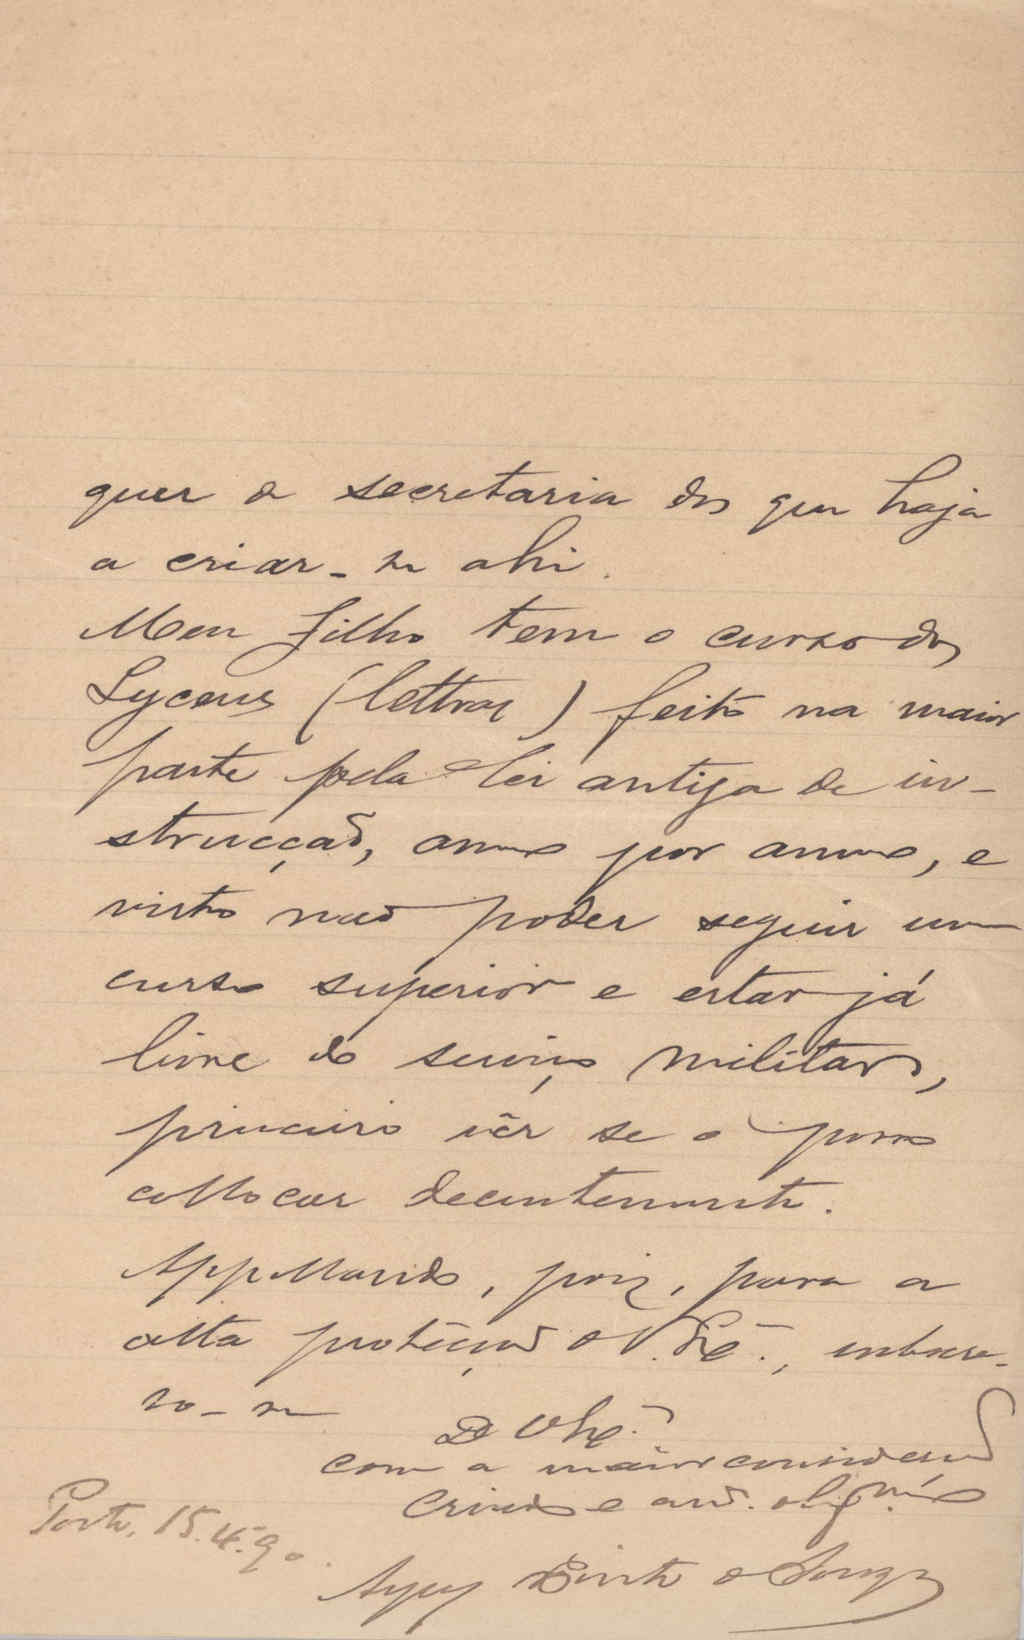 quer a secretaria dos que haja
a criar-se ahi.
Meu filho tem o curso dos
Lyceus (lettras) feito na maior
parte pela lei antiga de in-
strucção, annos por annos, e
visto não poder seguir um
curso superior e estar já
livre do serviço militar,
primeiro vêr se o posso
collocar decentemente.
Appellando, pois, para a
alta protecção de V. Exª., subscre-
vo-me
De V. Exª.
com a maior consideração
Criado e
Porto, 15.4.90.
Pinto de Souza